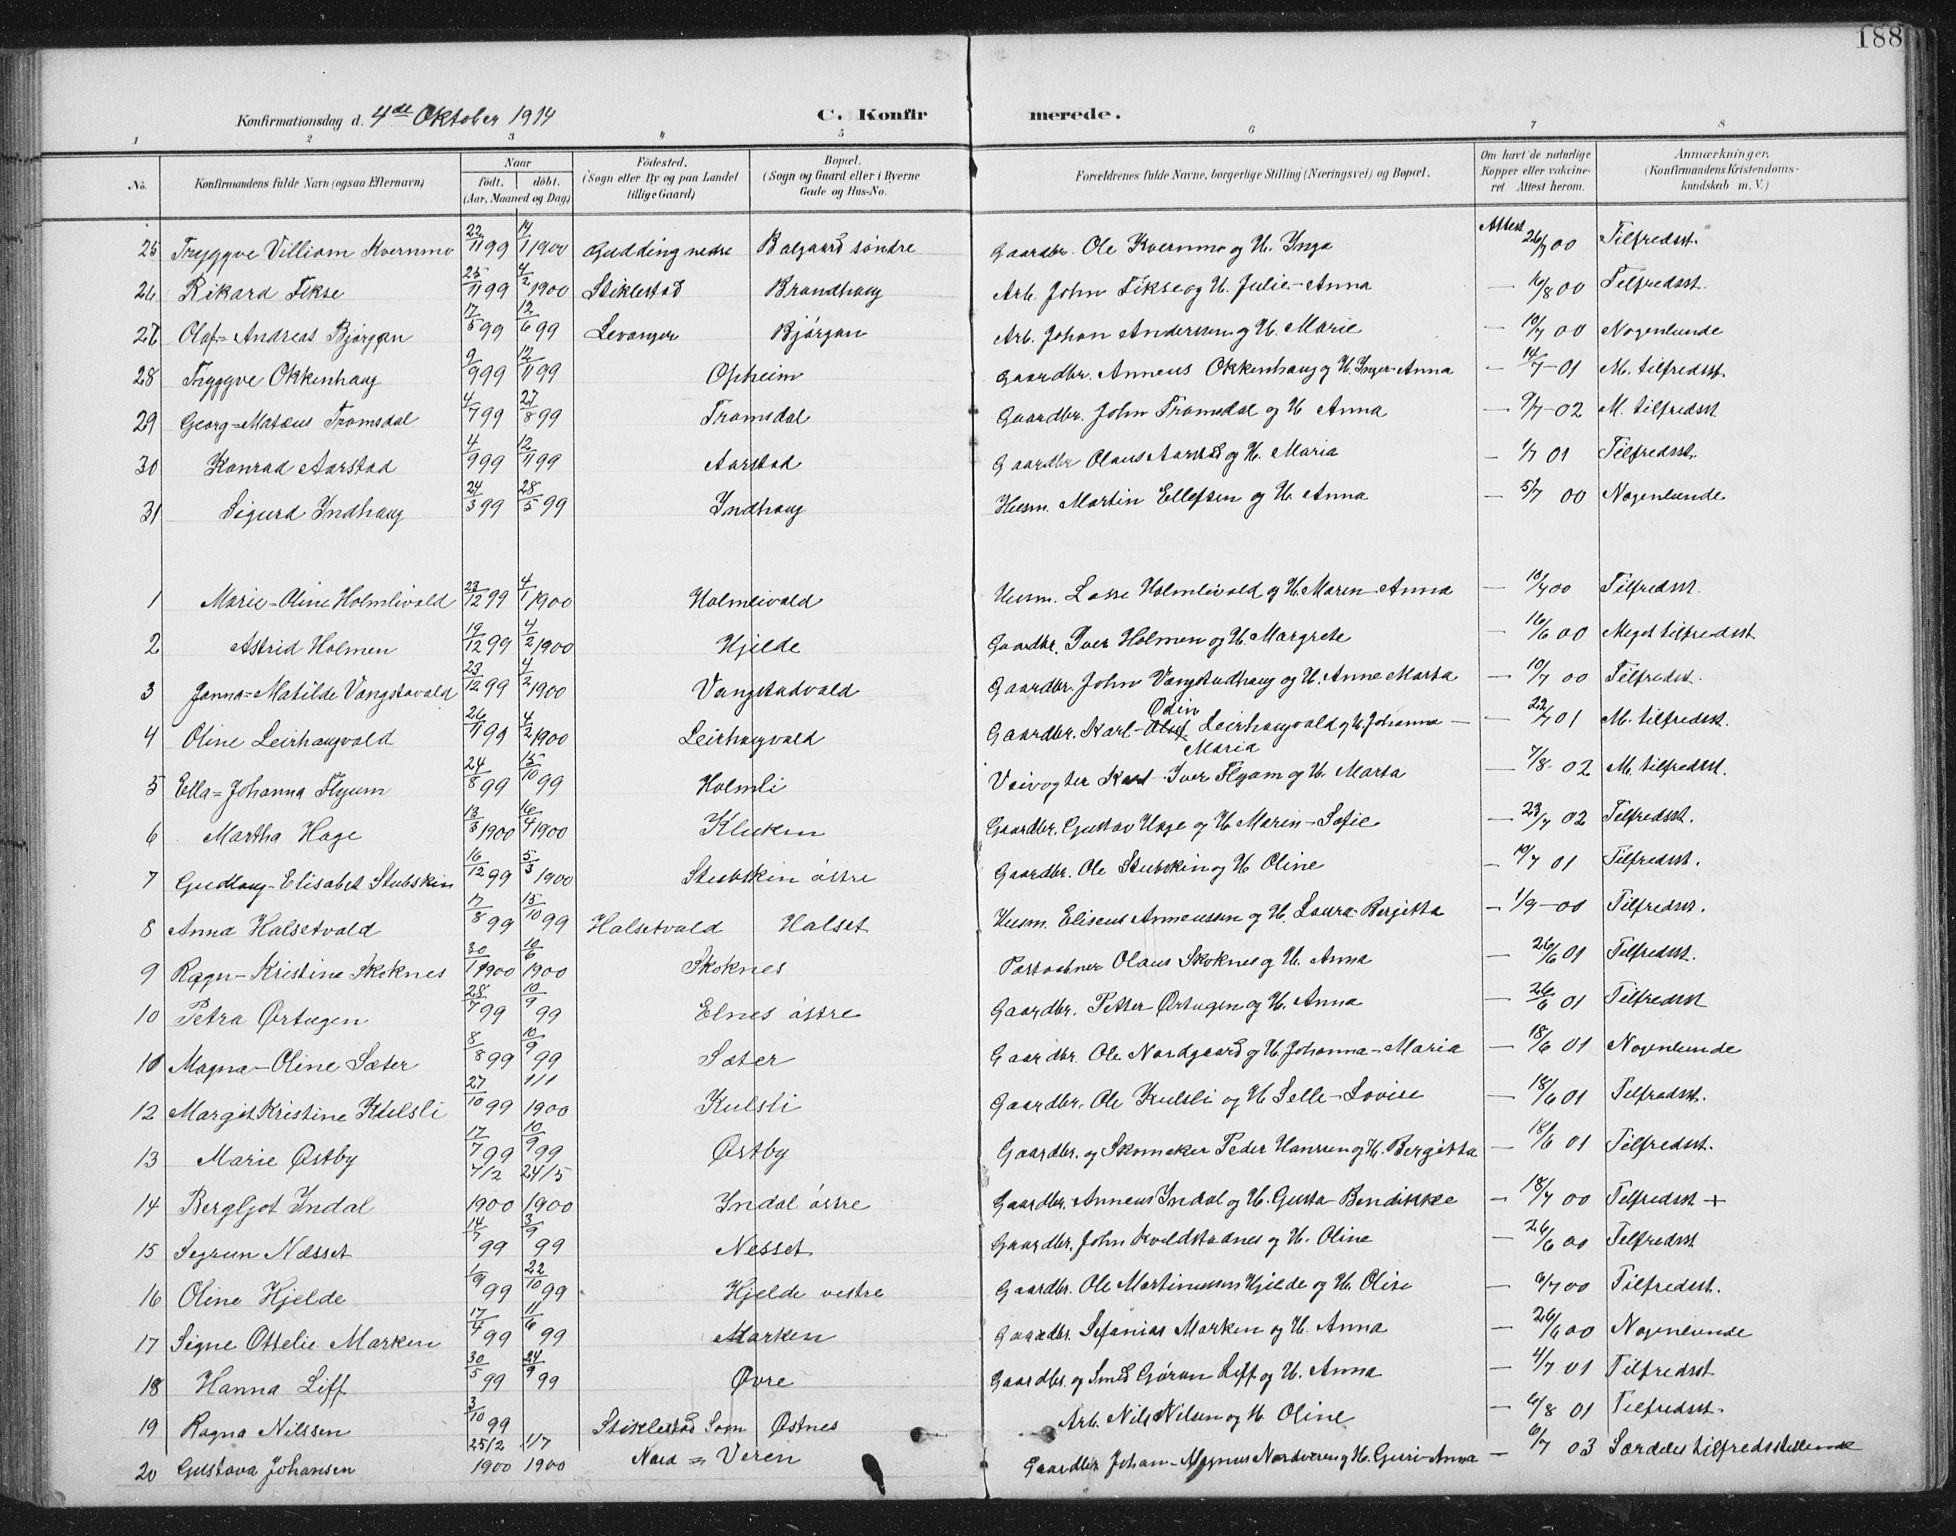 188
Konfirmationsdag d. 4de Oktober 1914 C. Konfirmerede.
1 2 3 4 5 6 7 8
No. Konfirmandens fulde Navn (ogsaa Efternavn) Naar født. døbt. (Aar, Maaned og Dag) Fødested. (Sogn eller By og paa Landet tillige Gaard) Bopæl. (Sogn og Gaard eller i Byerne Gade og Hus-No. Forældrenes fulde Navne, borgerlige Stilling (Næringsvei) og Bopæl. Om havt de naturlige Kopper eller vaccineret Attest herom. Anmærkninger. (Konfirmandens Kristendomskundskab m. V.)
25 Tryggve Villiam Kvernmo 22/11 99 14/1 1900 Gudding nedre Balgaard søndre Gaardbr. Ole Kvernmo og H. Inga Attest 26/7 00 Tilfredsst.
26 Rikard Fikse 25/11 99 4/2 1900 Stiklestad Brandhaug Arb. John Fikse og H. Julie-Anna — 6/8 00 Tilfredsst.
27 Olaf-Andreas Bjørgan 17/5 99 12/6 99 Levanger Bjørgan Arb. Johan Andersen og H. Marie — 10/7 00 Nogenlunde
28 Tryggve Okkenhaug 9/9 99 12/11 99 Opheim Gaardbr. Anneus Okkenhaug og H. Inger-Anna — 14/7-01 M. tilfredsst.
29 Georg-Mateus Tromsdal 4/7 99 27/8 99 Tromsdal Gaardbr. John Tromsdal og H. Anna — 9/7-02 M. tilfredsst
30 Konrad Aarstad 4/9 99 12/11 99 Aarstad Gaardbr Olaus Aarstad og H. Maria — 1/7 01 Tilfredsst.
31 Sigurd Indhaug 24/3 99 28/5 99 Indhaug Husm. Martin Ellefsen og H. Anna — 5/7 00 Nogenlunde
1 Marie-Oline Holmlivald 23/12 99 4/1 1900 Holmlivald Husm. Lasse Holmlivald og H. Maren-Anna — 10/7 00 Tilfredsst.
2 Astrid Holmen 19/12 99 4/2 1900 Hjelde Gaardbr. Iver Holmen og H. Margrete — 16/6 00 Meget tilfredsst
3 Janna-Matilde Vangstavald 23/12 99 4/2 1900 Vangstadvald Gaardbr. John Vangstadhaug og H. Anne Marta — 10/7 00 Tilfredsst.
4 Oline Leirhaugvald 26/11 99 4/2 1900 Leirhaugvald Gaardbr. Karl-Odin Leirhaugvald og H. Johanna-Maria — 22/7 01 M. tilfredsst.
5 Ella-Johanna Flyum 24/8 99 15/10 99 Holmli Veivogter Karl-Iver Flyum og H. Marta — 7/8-02 M. tilfredsst.
6 Martha Hage 13/3 1900 16/4 1900 Kluken Gaardbr. Gustav Hage og H. Maren-Sofie — 23/7 02 Tilfredsst.
7 Gudlaug-Elisabet Stubskin 16/12 99 5/3 1900 Stubskin østre Gaardbr. Ole Stubskin og H. Oline — 10/7 01 Tilfredsst.
8 Anna Halsetvald 17/8 99 15/10 99 Halsetvald Halset Husm. Eliseus Anneussen og H. Laura-Bergitta — 1/9-00 Tilfredsst.
9 Ragn-Kristine Skoknes 30/1 1900 10/6 1900 Skoknes Postaabner Olaus Skoknes og H. Anna — 26/6 01 Tilfredsst.
10 Petra Ørtugen 28/7 99 10/9 99 Elnes østre Gaardbr. Petter Ørtugen og H. Anna — 26/6 01 Tilfredsst
11 Magna-Oline Sæter 8/8 99 10/9 99 Sæter Gaardbr. Ole Nordgaard og H. Johanna-Maria — 18/6 01 Nogenlunde
12 Margit Kristine Kulsli 27/10 99 1/1 1900 Kulsli Gaardbr. Ole Kulsli og H Selle-Lovise — 18/6 01 Tilfredsst.
13 Marie Østby 17/7 99 10/9 99 Østby Gaardbr. og Skomaker Peder Hansen og H. Bergitta — 18/6 01 Tilfredsst.
14 Bergljot Indal 7/2 1900 24/5 1900 Indal østre Gaardbr. Anneus Indal og H. Gusta-Bendikke — 18/7 00 Tilfredsst +
15 Segrun Næsset 14/7 99 3/9 99 Nesset Gaardbr. John Kveldstadnes og H. Oline — 26/6 00 Tilfredsst
16 Oline Hjelde 1/9 99 22/10 99 Hjelde vestre Gaardbr. Ole Martinussen Hjelde og H. Olise — 6/7 00 Tilfredsst.
17 Signe Ottelie Marken 17/4 99 11/6 99 Marken Gaardbr. Sefanias Marken og H. Anna — 26/6 00 Nogenlunde
18 Hanna Liff 30/5 99 24/9 99 Øvre Gaardbr. og Smed Gøran Liff og H. Anna — 4/7 01 Tilfredsst
19 Ragna Nilssen 3/10 99 Stiklestad Sogn Østnes Arb. Nils Nilsen og H Oline — 6/8 01 Tilfredsst.
20 Gustava Johansen 25/2 1900 1/7 1900 Nord = Veren Gaardbr. Johan-Magnus Nordveren og H. Guri-Anna — 6/7 03 Særdeles tilfredsstillende